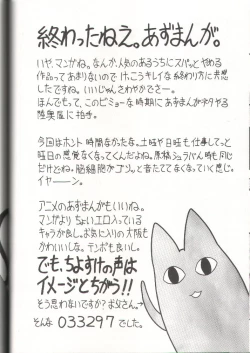 終わったねえ。あずまんが。
いや、マンガね。なんか人気のあるうちにスパッとやめる
作品ってあまりないので、けっこうキレイな終わり方に共感
したですね。いいじゃんさわやかでさー。
ほんでもって、このビミョーな時期にあずまんが本やる
陸奥屋に拍手。
今回はホント時間なかったな。土曜や日曜も仕事してっと
曜日の感覚なくなってくんだよね。原稿シュラバん時も同じ
だけどね。脳細胞がゴソッと音たててなくなっていく感じ。
イヤーーン。
アニメのあずまんがもいいね。
マンガよりちょいエロ入っている
キャラが良し。お気に入りの大阪も
かわいいしな。テンポも良いし。
でも、ちよすけの声は
イメージとちがう!!
そう思わないですか?お父さん。→
そんな 033297 でした。